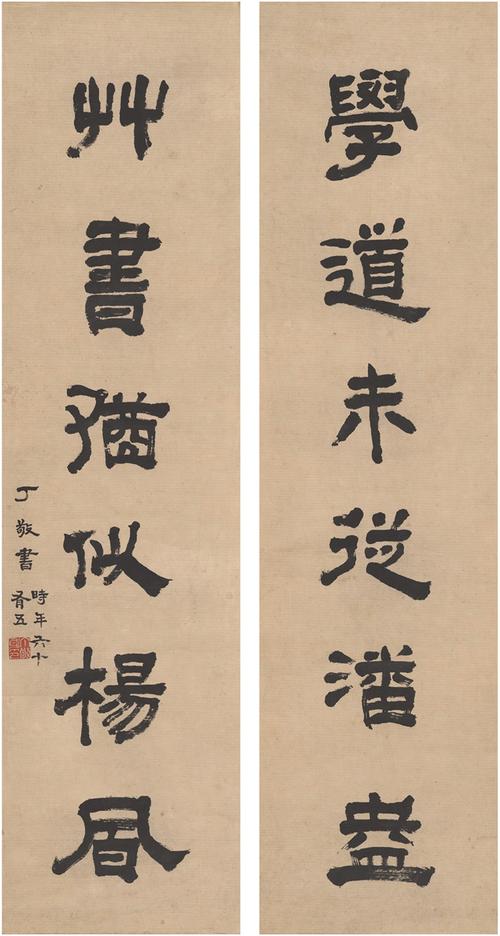 學道未從潘盎
艸書猶似楊凬
丁敬書
時年六十
有五